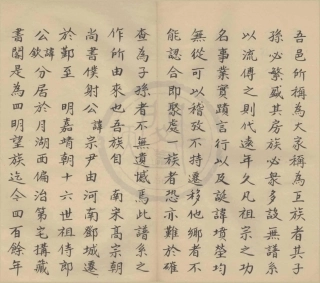 吾邑所稱為大家稱為互族者其子
孫必繁盛其房族必衆多設無譜系
以流傳之則代遠年久凡祖宗之功
名事業實蹟言行以及誕諱塋墳均
無從可以稽攷不特遷移他鄉者不
能認合即聚處一族者恐亦難於確
查為子孫者不無遺憾焉此譜系之
作所由來也吾族自 南宋高宗朝
尚書僕射公諱宗尹由河南鄧城遷
於鄞至 明嘉靖朝十六世祖侍郎
公諱欽分居於月湖西偏治第宅搆藏
書閣是為四明望族迄今四百餘年